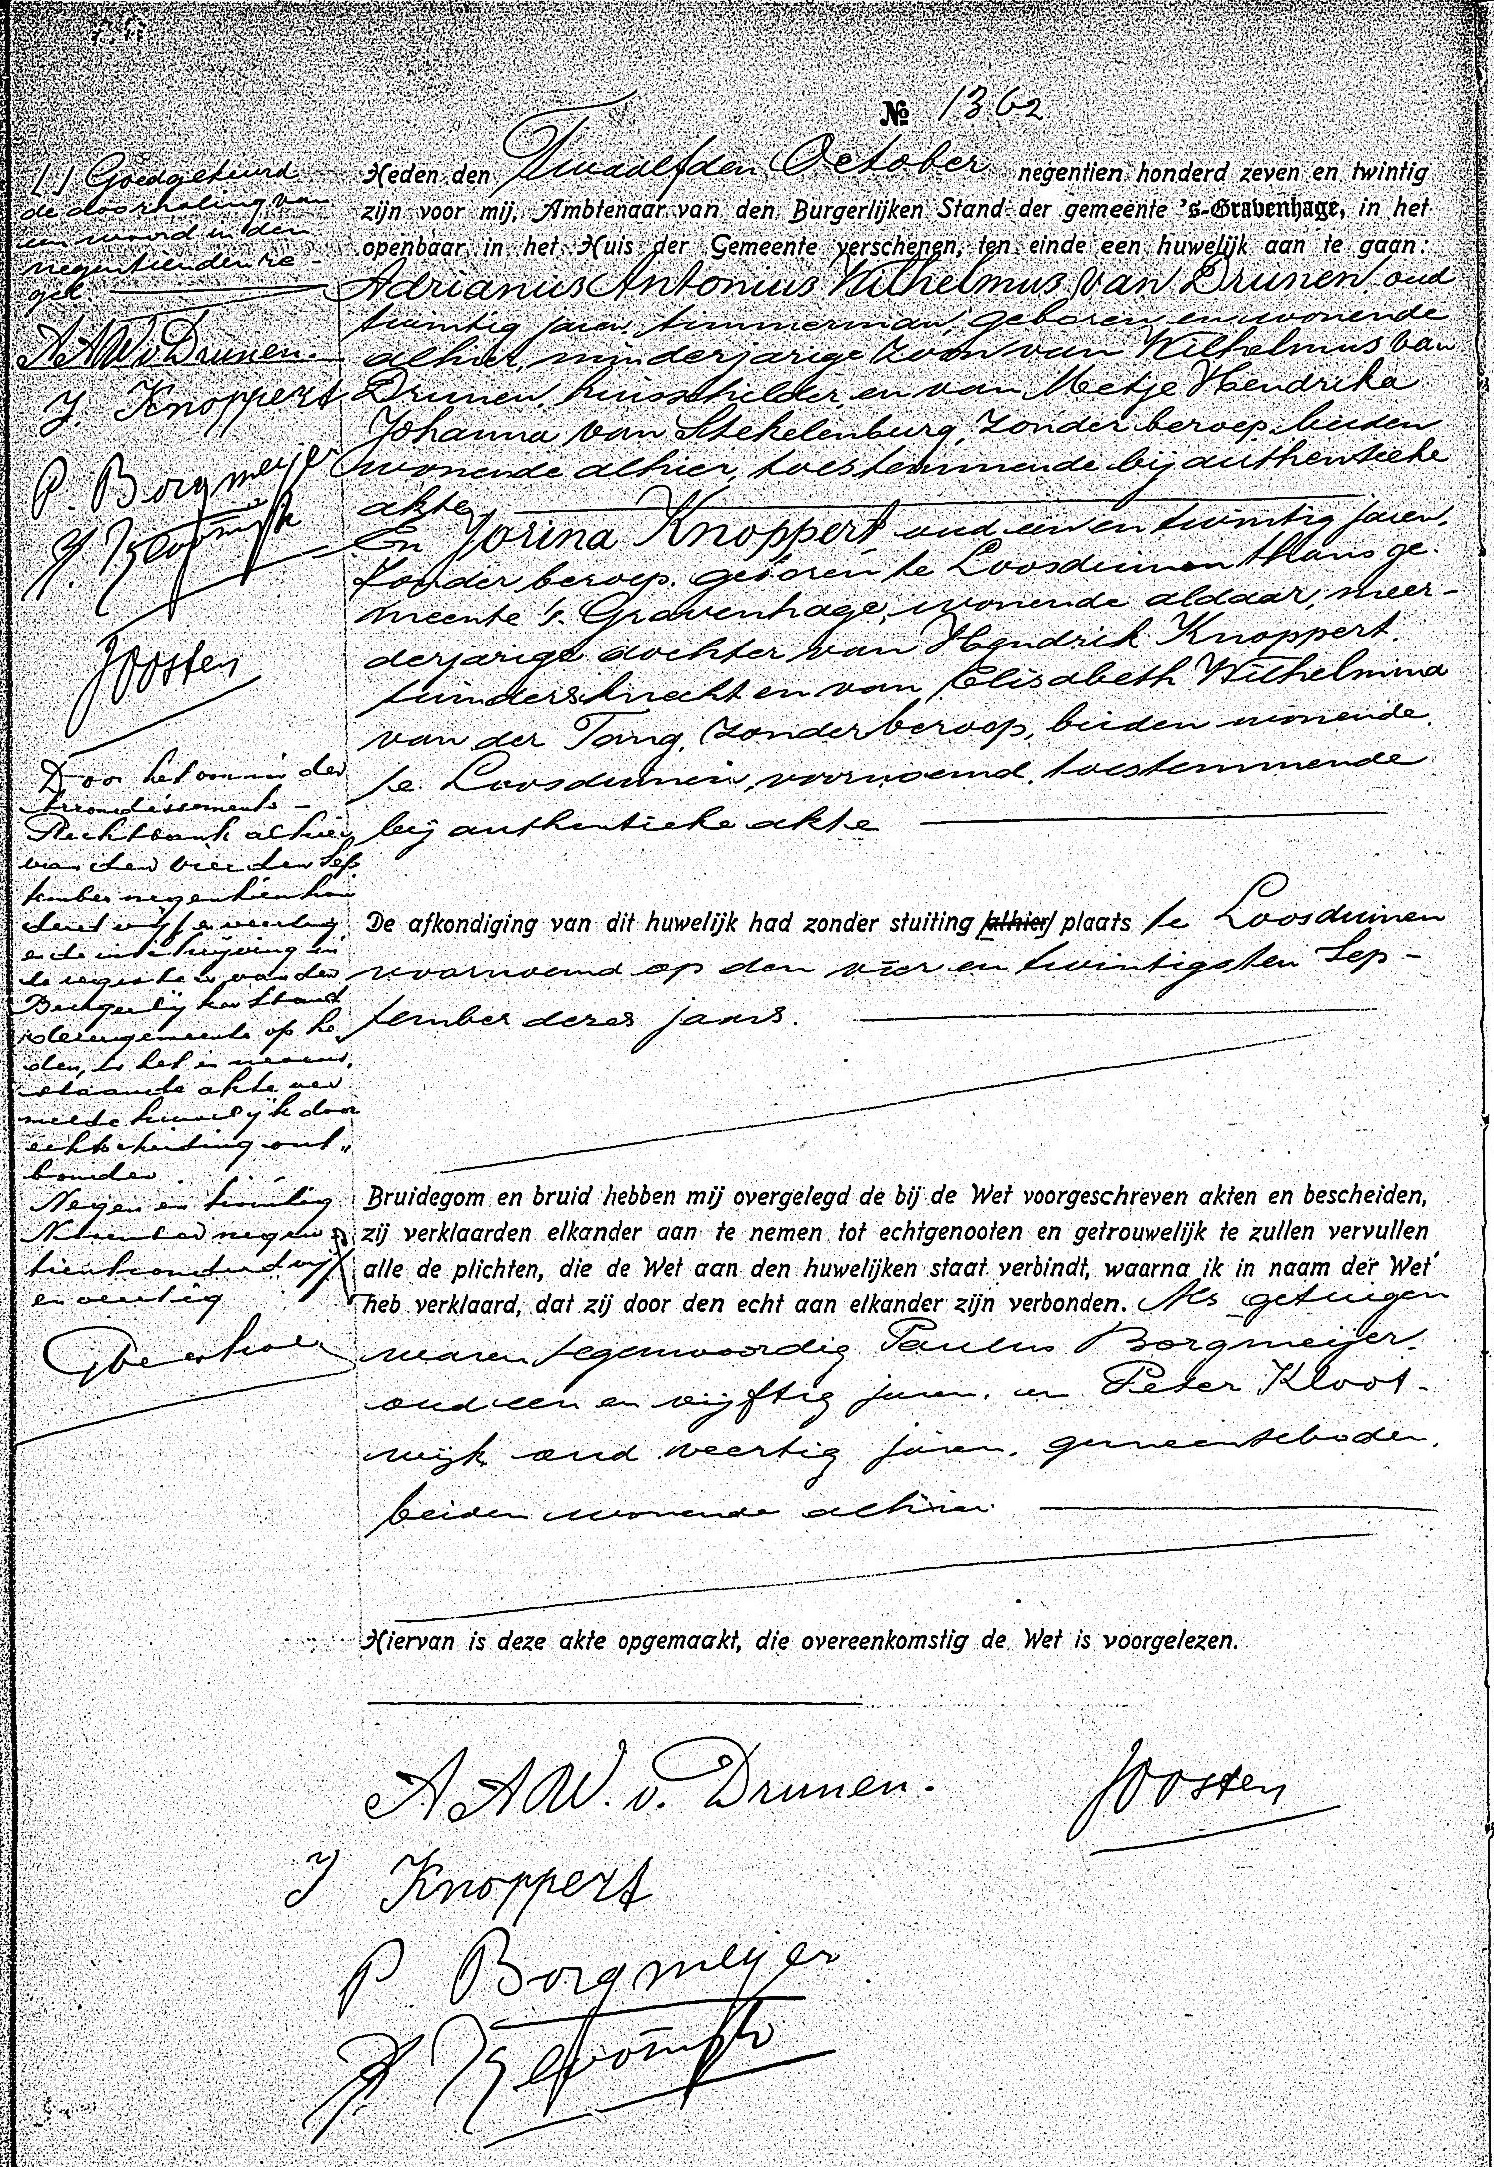 № 1362
Heden den Twaalfden October negentien honderd zeven en twintig
zijn voor mij, Ambtenaar van den Burgerlijken Stand der gemeente 's-Gravenhage, in het
openbaar in het Huis der Gemeente verschenen, ten einde een huwelijk aan te gaan:
Adrianus Antonius Wilhelmus van Drunen, oud
twintig jaren, timmerman, geboren en wonende
alhier, minderjarige zoon van Wilhelmus van
Drunen, huisschilder, en van Metje Hendrika
Johanna van Stekelenburg, zonder beroep, beiden
wonende alhier, toestemmende bij authentieke
akte,
En Jorina Knoppert oud een en twintig jaren,
zonder beroep, geboren te Loosduinen thans ge-
meente 's-Gravenhage, wonende aldaar, meer-
derjarige dochter van Hendrik Knoppert,
tuindersknecht en van Elisabeth Wilhelmina
van der Tang, zonder beroep, beiden wonende
te Loosduinen, voornoemd, toestemmende
bij authentieke akte
De afkondiging van dit huwelijk had zonder stuiting /alhier/ plaats te Loosduinen
voornoemd op den vier en twintigsten Sep-
tember dezes jaars.
Bruidegom en bruid hebben mij overgelegd de bij de Wet voorgeschreven akten en bescheiden,
zij verklaarden elkander aan te nemen tot echtgenooten en getrouwelijk te zullen vervullen
alle de plichten, die de Wet aan den huwelijken staat verbindt, waarna ik in naam der Wet
heb verklaard, dat zij door den echt aan elkander zijn verbonden. Als getuigen
waren tegenwoordig Paulus Borgmeijer,
oud een en vijftig jaren, en Peter Kloot-
wijk oud veertig jaren, gemeenteboden,
beiden wonende alhier
Hiervan is deze akte opgemaakt, die overeenkomstig de Wet is voorgelezen.
A A W. v. Drunen.
Joosten
J Knoppert
P Borgmeijer
P. Klootwijk
( ) Goedgekeurd
de doorhaling van
een woord in den
negentienden re-
gel.
A A W v Drunen.
J. Knoppert
P. Borgmeijer
P. Klootwijk
Joosten
Door het vonnis der
Arrondissements-
Rechtbank alhier
van den vierden Sep
tember negentienhon
derd vijf en veertig
en de inschrijving in
de registers van den
Burgerlijken Stand
dezer gemeente op he
den, is het in nevens-
staande akte ver
melde huwelijk door
echtscheiding ont-
bonden.
Negen en twintig
November negen
tienhonderd vijf
en veertig